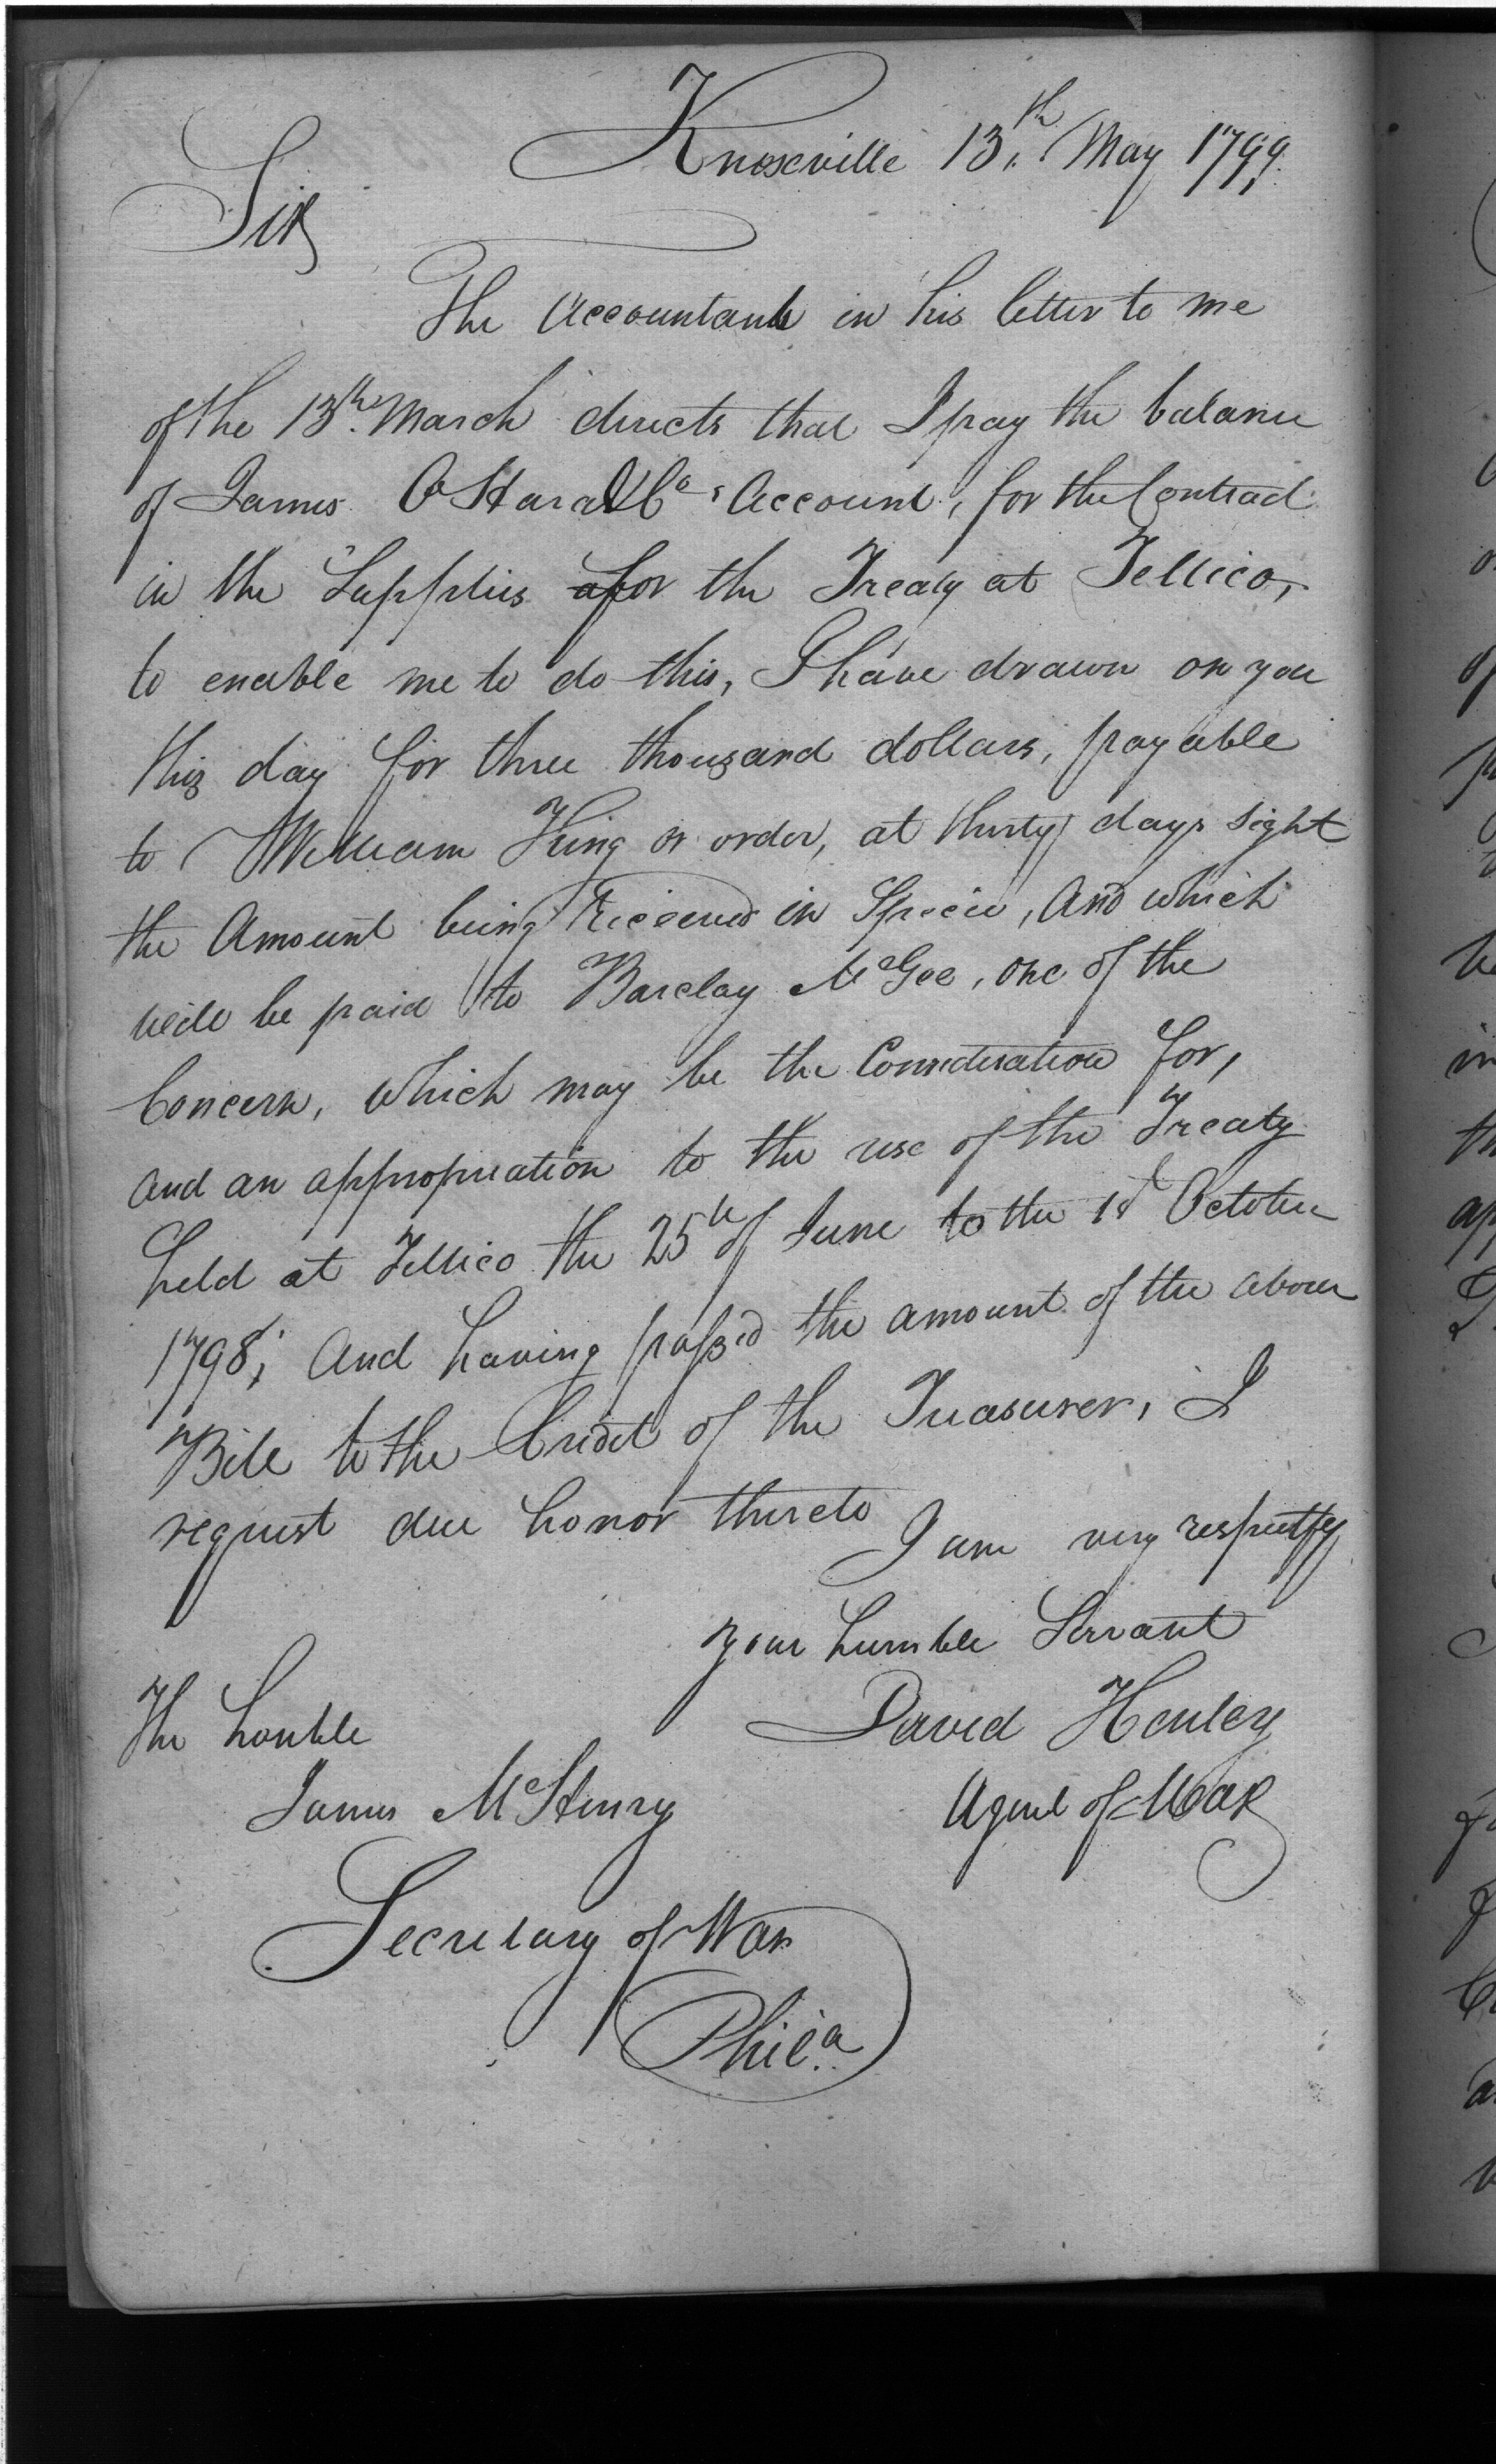 Knoxville 13th May 1799.
Sir
The Accountant in his letter to me
of the 13th March directs that I pay the balance
of James OHara & Cos Account, for the Contract
in the Supplies for the Treaty at Tellico,
to enable me to do this, I have drawn on you
this day for three thousand dollars, payable
to William King or order, at thirty days sight
the Amount being received in Specie, And which
will be paid to Barclay McGee, one of the
Concern, which may be the Consideration for,
and an appropriation to the use of the Treaty
held at Tellico the 25th of June to the 1st October
1798; And having passed the amount of the above
Bill to the Credit of the Treasurer, I
request due honor thereto
I am very respectfy
your humble Servant
David Henley
Agent of War
The honble
James McHenry
Secretary of War
Phila.